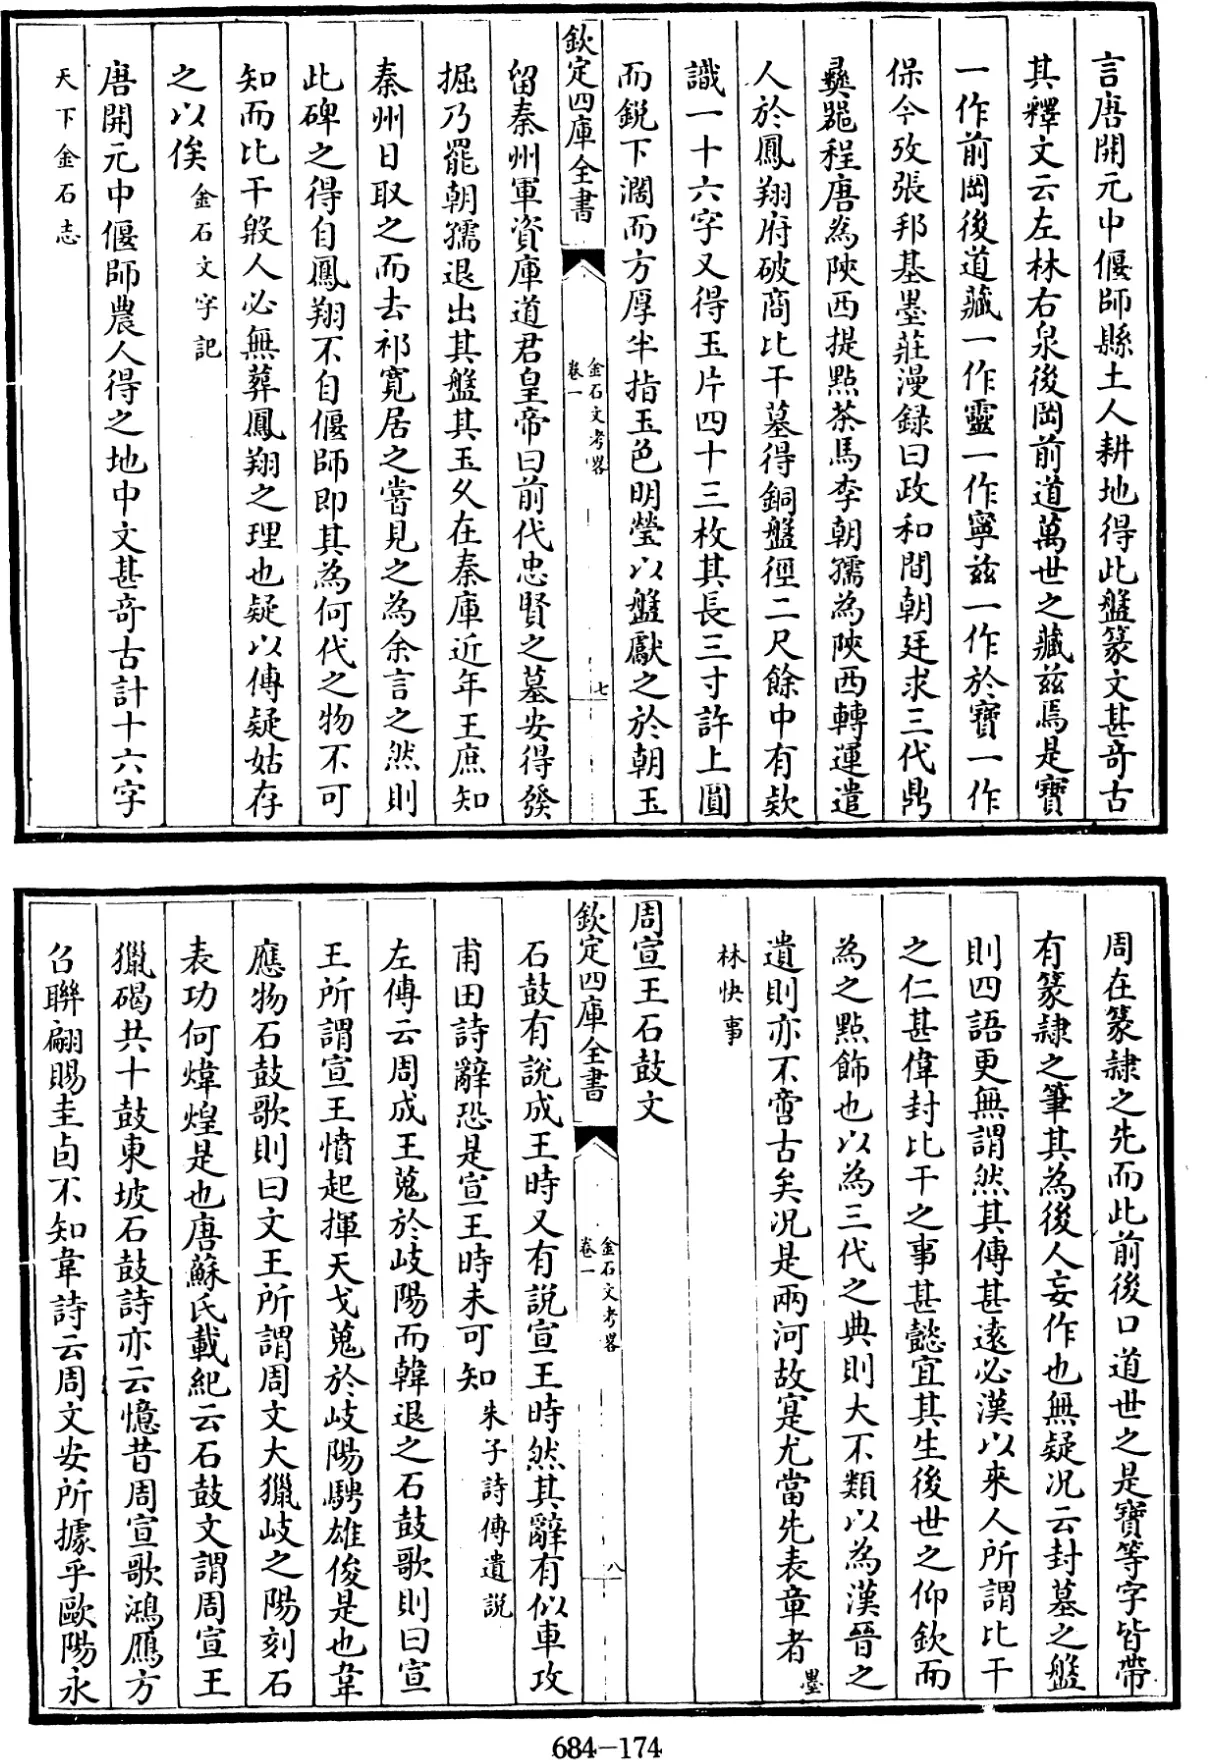 言唐開元中偃師縣土人耕地得此盤篆文甚奇古
其釋文云左林右泉後岡前道萬世之藏兹焉是寶
一作前岡後道藏一作靈一作寧兹一作於寶一作
保今攷張邦基墨莊漫録曰政和間朝廷求三代鼎
彛噐程唐為陝西提點茶馬李朝孺為陝西轉運遣
人於鳳翔府破商比干墓得銅盤徑二尺餘中有欵
識一十六字又得玉片四十三枚其長三寸許上圓
而鋭下濶而方厚半指玉色明瑩以盤獻之於朝玉
欽定四庫全書
金石文考畧
卷一
七
留秦州軍資庫道君皇帝曰前代忠賢之墓安得發
掘乃罷朝孺退出其盤其玉久在秦庫近年王庶知
秦州日取之而去祁寛居之嘗見之為余言之然則
此碑之得自鳳翔不自偃師即其為何代之物不可
知而比干殷人必無葬鳳翔之理也疑以傳疑姑存
之以俟金石文字記
唐開元中偃師農人得之地中文甚奇古計十六字
天下金石志
周在篆隷之先而此前後口道世之是寶等字皆帶
有篆隷之筆其為後人妄作也無疑况云封墓之盤
則四語更無謂然其傳甚遠必漢以來人所謂比干
之仁甚偉封比干之事甚懿宜其生後世之仰欽而
為之點飾也以為三代之典則大不類以為漢晉之
遺則亦不啻古矣况是兩河故寔尤當先表章者墨
林快事
周宣王石鼓文
欽定四庫全書
金石文考畧
卷一
八
石鼓有説成王時又有説宣王時然其辭有似車攻
甫田詩辭恐是宣王時未可知朱子詩傳遺説
左傳云周成王蒐於岐陽而韓退之石鼓歌則曰宣
王所謂宣王憤起揮天戈蒐於岐陽騁雄俊是也韋
應物石鼓歌則曰文王所謂周文大獵岐之陽刻石
表功何煒煌是也唐蘇氏載紀云石鼓文謂周宣王
獵碣共十鼓東坡石鼓詩亦云憶昔周宣歌鴻鴈方
召聯翩賜圭卣不知韋詩云周文安所據乎歐陽永
684-174